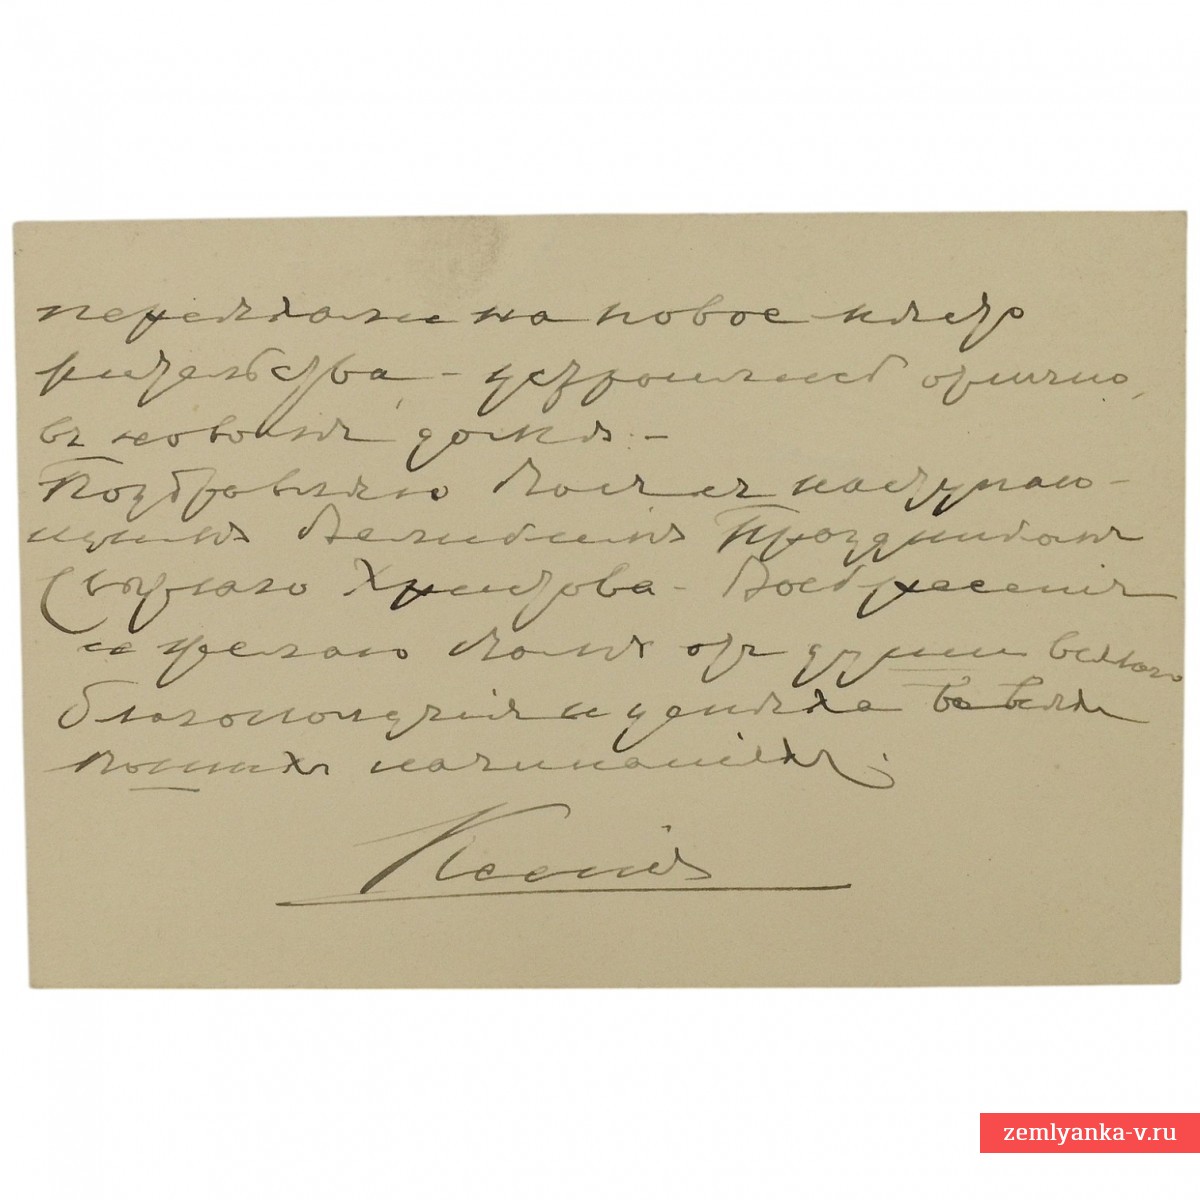 переѣхали на новое мѣсто
жительства, - устроились отлично,
въ новомъ домѣ -
Поздравляю Васъ съ наступаю-
щимъ Великимъ Праздникомъ
Свѣтлаго Христова - Воскресенія
и желаю Вамъ отъ души всякаго
благополучія и успѣха во всѣхъ
Вашихъ начинаніяхъ.
Ксенія
zemlyanka-v.ru